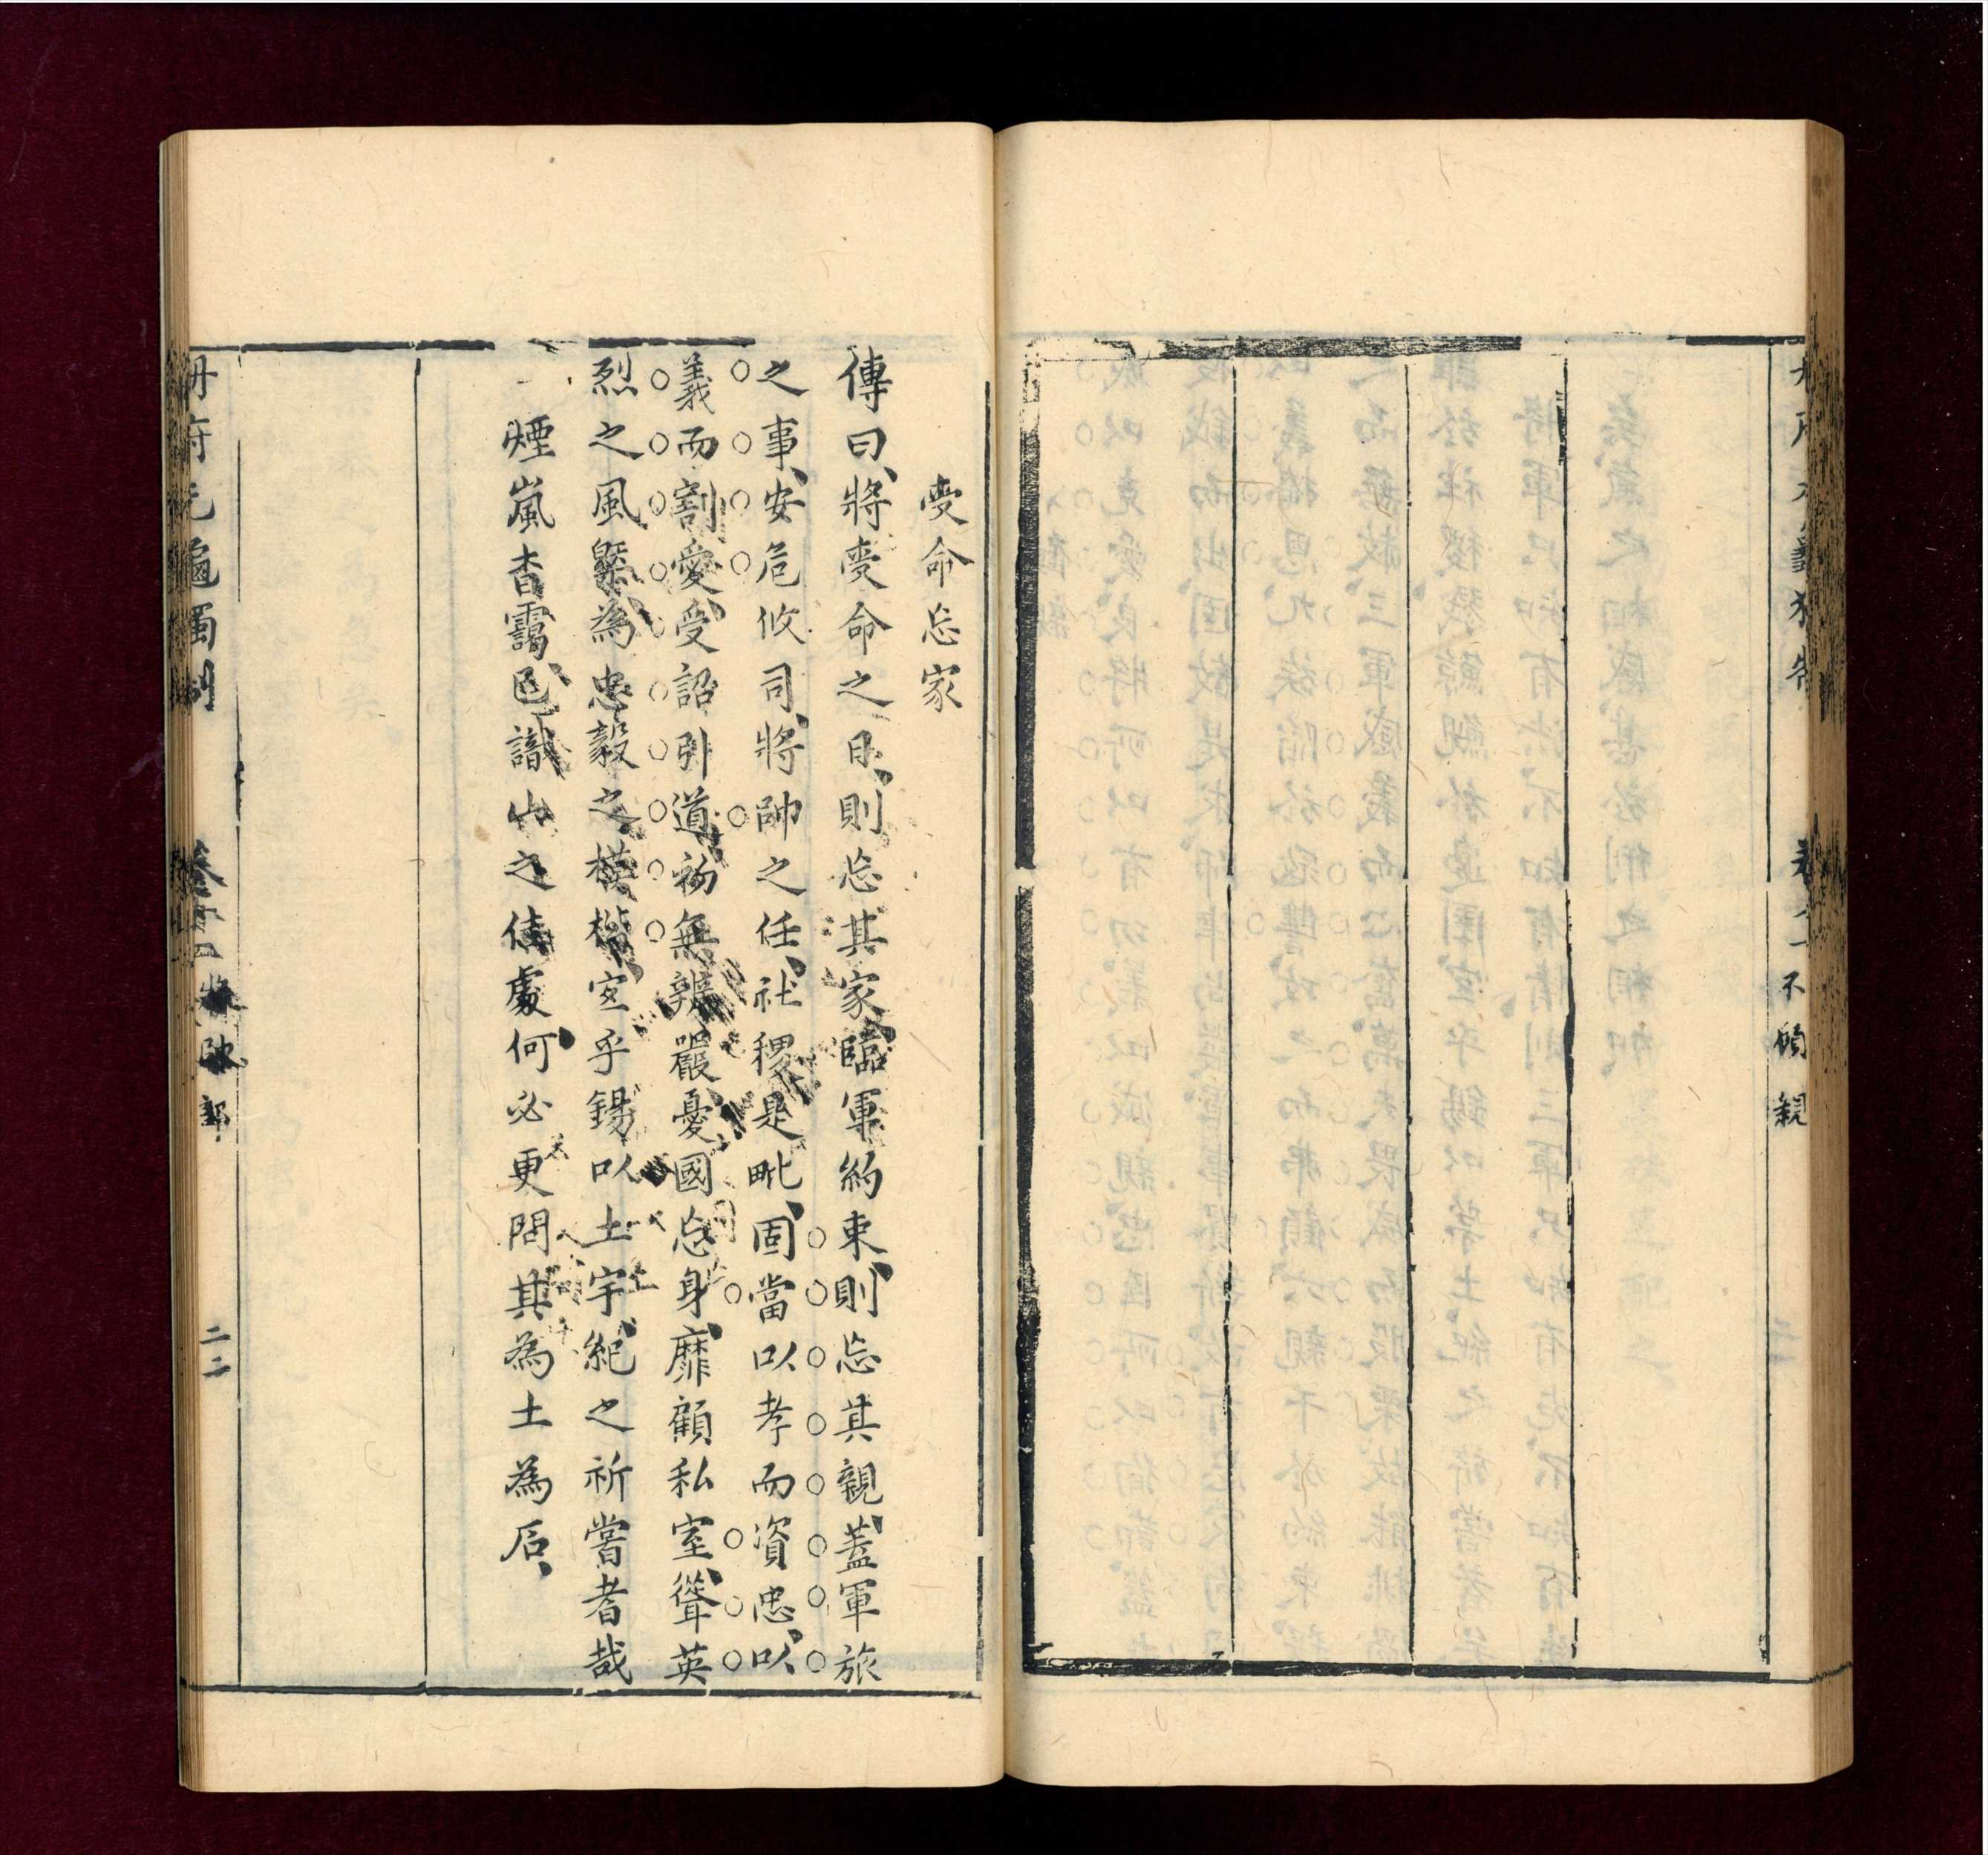 不顧親
受命忘家
傳曰將受命之日則忘其家臨軍約束則忘其親蓋軍旅
之事安危攸司將帥之任社稷是毗固當以孝而資忠以
義而割愛受詔引道初無辨嚴憂國忘身靡顧私室聳英
烈之風槩為忠毅之模楷宜乎錫以土宇紀之祈嘗者哉
煙嵐杳靄邑識山之佳處何必更問其為土為后
冊府元龜獨制
將帥部
二二